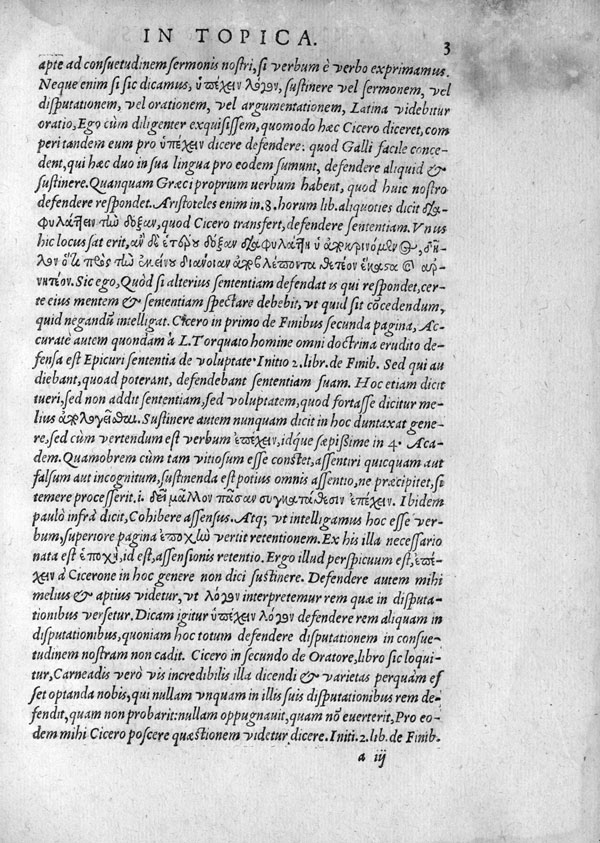 IN TOPICA. 3
apte ad consuetudinem sermonis nostri, si verbum è verbo exprimamus.
Neque enim si sic dicamus, ὑπέχειν λόγον, sustinere vel sermonem, vel
disputationem, vel orationem, vel argumentationem, Latina videbitur
oratio, Ego cùm diligenter exquisissem, quomodo hæc Cicero diceret, com
peri tandem eum pro ὑπέχειν dicere defendere: quod Galli facile conce-
dent, qui hæc duo in sua lingua pro eodem sumunt, defendere aliquid &
sustinere. Quanquam Græci proprium uerbum habent, quod huic nostro
defendere respondet. Aristoteles enim in .8. horum lib. aliquoties dicit δια
φυλάττειν τὴν δόξαν, quod Cicero transfert, defendere sententiam. Vnus
hic locus sat erit, ἂν δὲ ἑτέρου δόξαν διαφυλάττῃ ὁ ἀποκρινόμενος, δῆ-
λον ὅτι πρὸς τὴν ἐκείνου διάνοιαν ἀποβλέποντα θετέον ἕκαστα καὶ ἀρ-
νητέον. Sic ego, Quòd si alterius sententiam defendat is qui respondet, cer-
te eius mentem & sententiam spectare debebit, vt quid sit cōcedendum,
quid negandū intelligat. Cicero in primo de Finibus secunda pagina, Ac-
curatè autem quondam à L. Torquato homine omni doctrina erudito de-
fensa est Epicuri sententia de voluptate. Initio 2. libr. de Finib. Sed qui au
diebant, quoad poterant, defendebant sententiam suam. Hoc etiam dicit
tueri, sed non addit sententiam, sed voluptatem, quod fortasse dicitur me-
lius ἀπολογεῖσθαι. Sustinere autem nunquam dicit in hoc duntaxat gene-
re, sed cùm vertendum est verbum ἐπέχειν, idq́ue sæpißime in 4. Aca-
dem. Quamobrem cùm tam vitiosum esse constet, assentiri quicquam aut
falsum aut incognitum, sustinenda est potius omnis assentio, ne præcipitet, si
temere processerit. i. δεῖ μᾶλλον πᾶσαν συγκατάθεσιν ἐπέχειν. Ibidem
paulò infrà dicit, Cohibere assensus. Atq; vt intelligamus hoc esse ver-
bum, superiore pagina ἐποχὴν vertit retentionem. Ex his illa necessario
nata est ἐποχὴ, id est, assensionis retentio. Ergo illud perspicuum est, ἐπέ-
χειν à Cicerone in hoc genere non dici sustinere. Defendere autem mihi
melius & aptius videtur, vt λόγον interpretemur rem quæ in disputa-
tionibus versetur. Dicam igitur ὑπέχειν λόγον defendere rem aliquam in
disputationibus, quoniam hoc totum defendere disputationem in consue-
tudinem nostram non cadit. Cicero in secundo de Oratore, libro sic loqui-
tur, Carneadis verò vis incredibilis illa dicendi & varietas perquàm es
set optanda nobis, qui nullam vnquam in illis suis disputationibus rem de-
fendit, quam non probarit: nullam oppugnauit, quam nō euerterit, Pro eo-
dem mihi Cicero poscere quæstionem videtur dicere. Initi. 2. lib. de Finib.
a iij